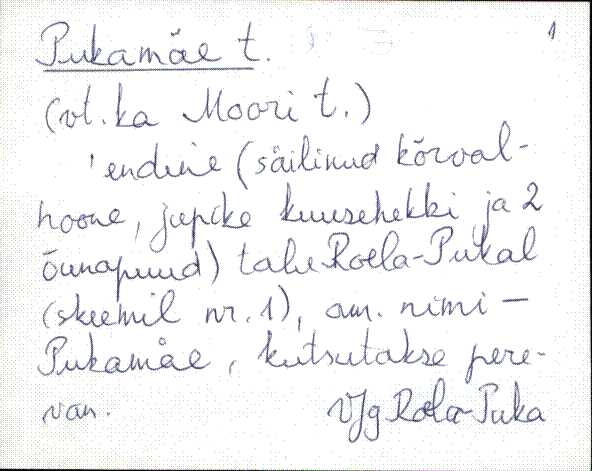 1
Pukamäe t.
(vt. ka Moori t.)
'endine (säilinud kõrval-
hoone, jupike kuusehekki ja 2
õunapuud) talu Roela-Pukal
(skeemil nr. 1), am. nimi —
Pukamäe, kutsutakse pere-
van.
VJg Roela-Puka